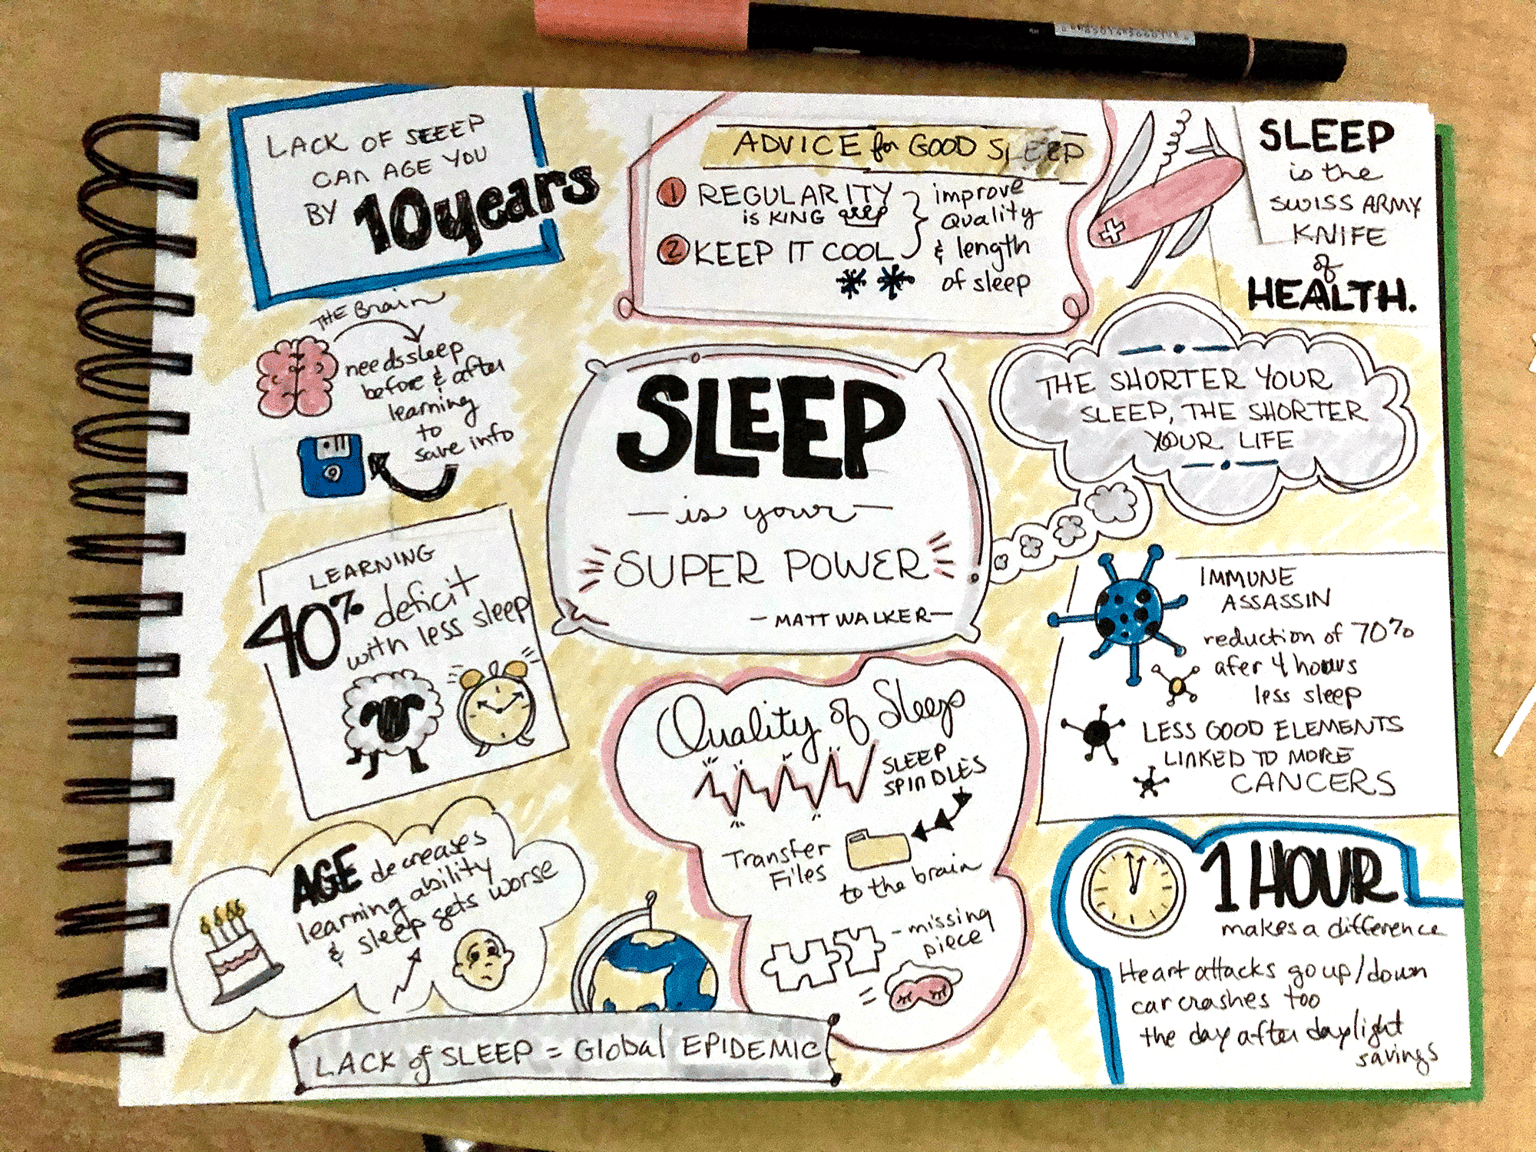 LACK OF SLEEP
CAN AGE YOU
BY 10 years
ADVICE for GOOD SLEEP
1 REGULARITY
is KING
2 KEEP IT COOL
improve
quality
& length
of sleep
SLEEP
is the
SWISS ARMY
KNIFE
of
HEALTH.
THE Brain
needs sleep
before & after
learning
to
save info
SLEEP
is your
SUPER POWER
- MATT WALKER -
THE SHORTER YOUR
SLEEP, THE SHORTER
YOUR LIFE
LEARNING
40% deficit
with less sleep
IMMUNE
ASSASSIN
reduction of 70%
afer 4 hours
less sleep
LESS GOOD ELEMENTS
LINKED TO MORE
CANCERS
Quality of Sleep
SLEEP
SPINDLES
Transfer
Files
to the brain
- missing
piece
AGE decreases
learning ability
& sleep gets worse
LACK of SLEEP = Global EPIDEMIC
1 HOUR
makes a difference
Heart attacks go up/down
car crashes too
the day after daylight
savings